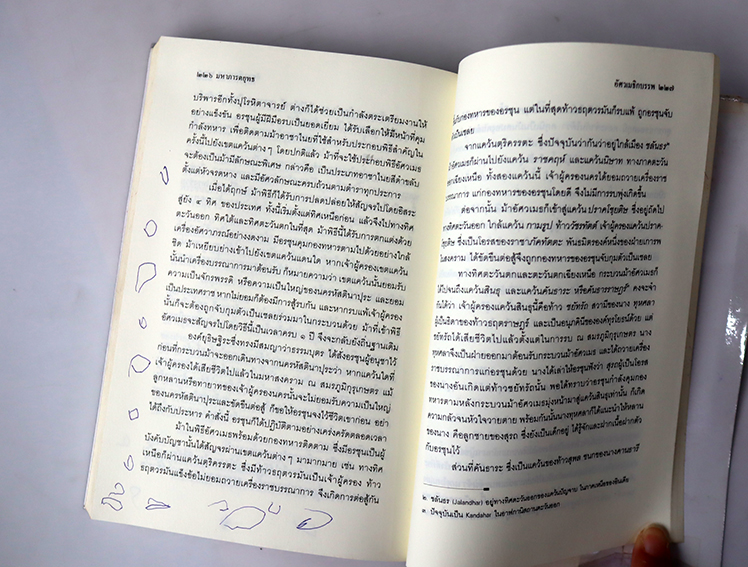 ๒๒๖ มหาภารตยุทธ
บริพารอีกทั้งปุโรหิตาจารย์ ต่างก็ได้ช่วยเป็นกำลังตระเตรียมงานให้
อย่างแข็งขัน อรชุนผู้มีฝีมือรบเป็นยอดเยี่ยม ได้รับเลือกให้มีหน้าที่คุม
กำลังทหาร เพื่อติดตามม้าอาชาไนยที่ใช้สำหรับประกอบพิธีสำคัญใน
ครั้งนี้ไปยังเขตแคว้นต่างๆ โดยปกติแล้ว ม้าที่จะใช้ประกอบพิธีอัศวเมธ
จะต้องเป็นม้ามีลักษณะพิเศษ กล่าวคือ เป็นประเภทอาชาไนยสีดำขลับ
ตั้งแต่หัวจรดหาง และมีอัศวลักษณะครบถ้วนตามตำราทุกประการ
เมื่อได้ฤกษ์ ม้าพิธีก็ได้รับการปลดปล่อยให้สัญจรไปโดยอิสระ
สู่ยัง ๔ ทิศ ของประเทศ ทั้งนี้เริ่มตั้งแต่ทิศเหนือก่อน แล้วจึงไปทางทิศ
ตะวันออก ทิศใต้และทิศตะวันตกในที่สุด ม้าพิธีนี้ได้รับการตกแต่งด้วย
เครื่องอัศวาภรณ์อย่างงดงาม มีอรชุนคุมกองทหารตามไปด้วยอย่างใกล้
ชิด ม้าเหยียบย่างเข้าไปยังเขตแคว้นแดนใด หากเจ้าผู้ครองเขตแคว้น
นั้นนำเครื่องบรรณาการมาต้อนรับ ก็หมายความว่า เขตแคว้นนั้นยอมรับ
ความเป็นจักรพรรดิ หรือความเป็นใหญ่ของนครหัสตินาปุระ และยอม
เป็นประเทศราช หากไม่ยอมก็ต้องมีการสู้รบกัน และหากรบแพ้เจ้าผู้ครอง
นั้นก็จะต้องถูกจับกุมตัวเป็นเชลยร่วมมาในกระบวนด้วย ม้าที่เข้าพิธี
อัศวเมธจะสัญจรไปโดยวิธีนี้เป็นเวลาครบ ๑ ปี จึงจะกลับยังถิ่นฐานเดิม
องค์ยุธิษฐิระซึ่งทรงมีสมญาว่าธรรมบุตร ได้สั่งอรชุนผู้อนุชาไว้
ก่อนที่กระบวนม้าจะออกเดินทางจากนครหัสตินาปุระว่า หากแคว้นใดที่
เจ้าผู้ครองได้เสียชีวิตไปแล้วในมหาสงคราม ณ สมรภูมิกุรุเกษตร แม้
ลูกหลานหรือทายาทของเจ้าผู้ครองนครนั้นจะไม่ยอมรับความเป็นใหญ่
ของนครหัสตินาปุระและขัดขืนต่อสู้ ก็ขอให้อรชุนจงไว้ชีวิตเขาก่อน อย่า
ได้ถึงกับประหาร คำสั่งนี้ อรชุนก็ได้ปฏิบัติตามอย่างเคร่งครัดตลอดเวลา
ม้าในพิธีอัศวเมธพร้อมด้วยกองทหารติดตาม ซึ่งมีอรชุนเป็นผู้
บังคับบัญชานั้นได้สัญจรผ่านเขตแคว้นต่างๆ มามากมาย เช่น ทางทิศ
เหนือก็ผ่านแคว้นตฺริคิรรตะ ซึ่งมีท้าวธฤตวรมันเป็นเจ้าผู้ครอง ท้าว
ธฤตวรมันแข็งข้อไม่ยอมถวายเครื่องราชบรรณาการ จึงเกิดการต่อสู้กัน
อัศวเมธิกบรรพ ๒๒๗
กับกองทหารของอรชุน แต่ในที่สุดท้าวธฤตวรมันก็รบแพ้ ถูกอรชุนจับ
เป็นเชลย
จากแคว้นตฺริคิรรตะ ซึ่งปัจจุบันว่ากันว่าอยู่ใกล้เมือง ชลันธร
ม้าอัศวเมธก็ผ่านไปยังแคว้น ราชคฤห์ และแคว้นนิษาท ทางภาคตะวัน
ออกเฉียงเหนือ ทั้งสองแคว้นนี้ เจ้าผู้ครองนครได้ยอมถวายเครื่องราช
บรรณาการ แก่กองทหารของอรชุนโดยดี จึงไม่มีการรบพุ่งเกิดขึ้น
ต่อจากนั้น ม้าอัศวเมธก็เข้าสู่แคว้น ปราคโชฺยติษ ซึ่งอยู่ถัดไป
ทางทิศตะวันออก ใกล้แคว้น กามรูป ท้าววัชรทัตต์ เจ้าผู้ครองแคว้นปราค-
โชฺยติษ ซึ่งเป็นโอรสของราชาภคัทัตตะ พันธมิตรองค์หนึ่งของฝ่ายเการพ
ในสงคราม ได้ขัดขืนต่อสู้จึงถูกกองทหารของอรชุนจับกุมตัวเป็นเชลย
ทางทิศตะวันตกและตะวันตกเฉียงเหนือ กระบวนม้าอัศวเมธก็
ได้ไปจนถึงแคว้นสินธุ และแคว้นคันธาระ หรือคันธารราษฎร์ คงจะจำ
กันได้ว่า เจ้าผู้ครองแคว้นสินธุนี้คือท้าว ชยัทรัถ สวามีของนาง ทุหศลา
ผู้เป็นธิดาของท้าวธฤตราษฎร์ และเป็นอนุภคินีขององค์ทุรโยธน์ด้วย แต่
ชยัทรัถได้เสียชีวิตไปแล้วตั้งแต่ในการรบ ณ สมรภูมิกุรุเกษตร นาง
ทุหศลาจึงเป็นฝ่ายออกมาต้อนรับกระบวนม้าอัศวเมธ และได้ถวายเครื่อง
ราชบรรณาการแก่อรชุนด้วย นางได้เล่าให้อรชุนฟังว่า สุรถผู้เป็นโอรส
ของนางอันเกิดแต่ท้าวชยัทรถนั้น พอได้ทราบว่าอรชุนกำลังคุมกอง
ทหารตามหลังกระบวนม้าอัศวเมธมุ่งหน้ามาสู่แคว้นสินธุเท่านั้น ก็เกิด
ความกลัวจนหัวใจวายตาย พร้อมกันนั้นนางทุหศลาก็ได้แนะนำให้หลาน
ของนาง คือลูกชายของสุรถ ซึ่งยังเป็นเด็กอยู่ ได้รู้จักและฝากเนื้อฝากตัว
กับอรชุนไว้
ส่วนที่คันธาระ ซึ่งเป็นแคว้นของท้าวสุพล ชนกของนางคานธารี
๒ ชลันธร (Jalandhar) อยู่ทางทิศตะวันออกของแคว้นปัญจาบ ในภาคเหนือของอินเดีย
๓. ปัจจุบันเป็น Kandahar ในอาฟกานิสถานตะวันออก